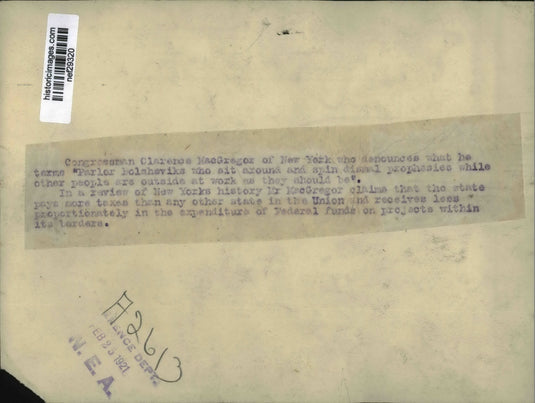 historicimages.com
net29320
Congressman Clarence MacGregor of New York who denounces what he
terms "Parlor Bolsheviks who sit around and spin dismal prophesies while
other people are outside at work as they should be".
In a review of New Yorks history Mr MacGregor claims that the state
pays more taxes than any other state in the Union and receives less
proportionately in the expenditure of Federal funds on projects within
its borders.
A2613
RENCE DEPT.
FEB 25 1921
N. E. A.